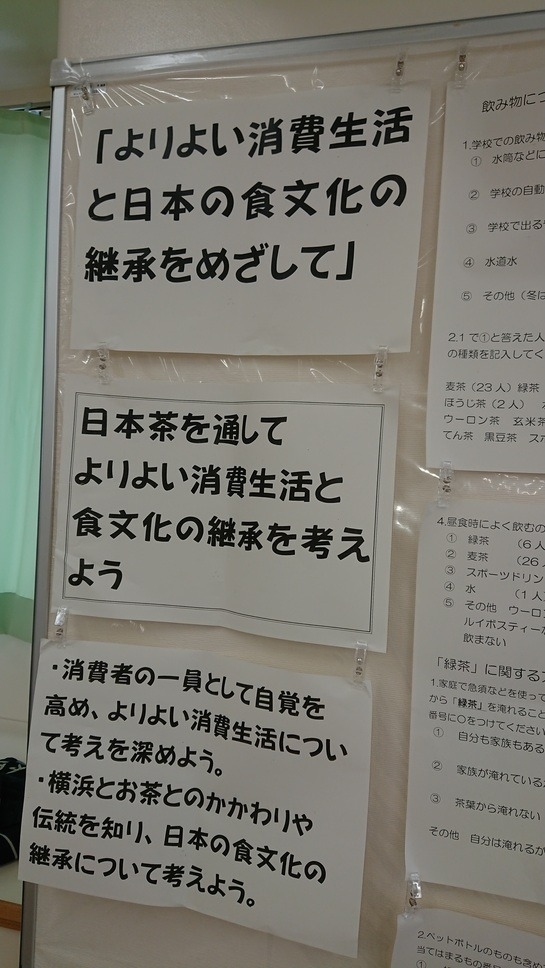 「よりよい消費生活
と日本の食文化の
継承をめざして」
日本茶を通して
よりよい消費生活と
食文化の継承を考え
よう
・消費者の一員として自覚を
高め、よりよい消費生活につい
て考えを深めよう。
・横浜とお茶とのかかわりや
伝統を知り、日本の食文化の
継承について考えよう。
飲み物に
1.学校での飲み物
① 水筒などに
② 学校の自動
③ 学校で出る
④ 水道水
⑤ その他（冬は
2.1で①と答えた人
の種類を記入してく
麦茶（23人）緑茶
ほうじ茶（2人）
ウーロン茶 玄米茶
てん茶 黒豆茶 スポ
4.昼食時によく飲むの
① 緑茶 （6人
② 麦茶 （26
③ スポーツドリン
④ 水 （1人
⑤ その他 ウーロ
ルイボスティー
飲まない
「緑茶」に関する
1.家庭で急須などを使って
から「緑茶」を淹れること
番号に○をつけてください
① 自分も家族もある
② 家族が淹れている
③ 茶葉から淹れない
その他 自分は淹れるが
2.ペットボトルのものも含め
当てはまるもの
①